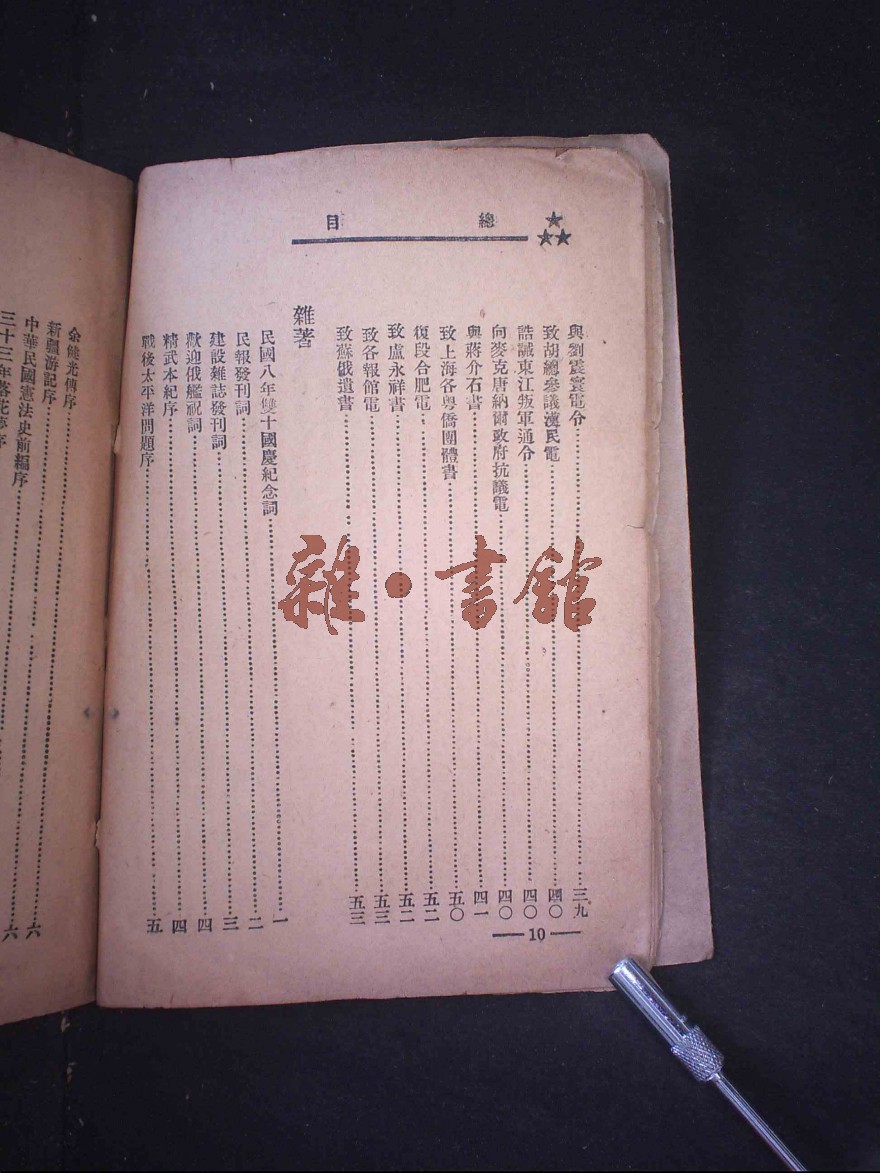 總目
與劉震寰電令三九
致胡總參議漢民電四〇
誥誡東江叛軍通令四〇
向麥克唐納爾政府抗議電四〇
與蔣介石書四一
致上海各粵僑團體書五〇
復段合肥電五二
致盧永祥書五二
致各報館電五三
致蘇俄遺書五三
雜著
民國八年雙十國慶紀念詞一
民報發刊詞二
建設雜誌發刊詞三
歡迎俄艦祝詞四
精武本紀序四
戰後太平洋問題序五
10
余健光傳序
新疆游記序六
中華民國憲法史前編序六
三十三年落花夢序
雜·書館